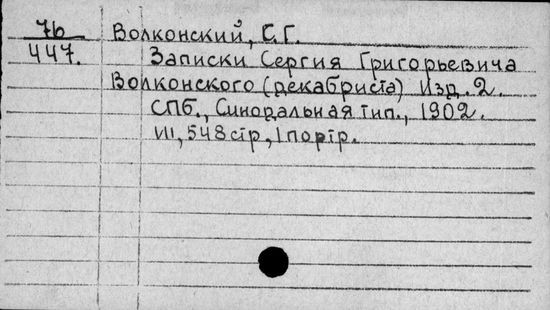 7б Волконский, С.Г.
447. Записки Сергия Григорьевича
Волконского (декабриста) Изд. 2.
СПб., Синодальная тип., 1902.
VII, 548 стр, 1 портр.